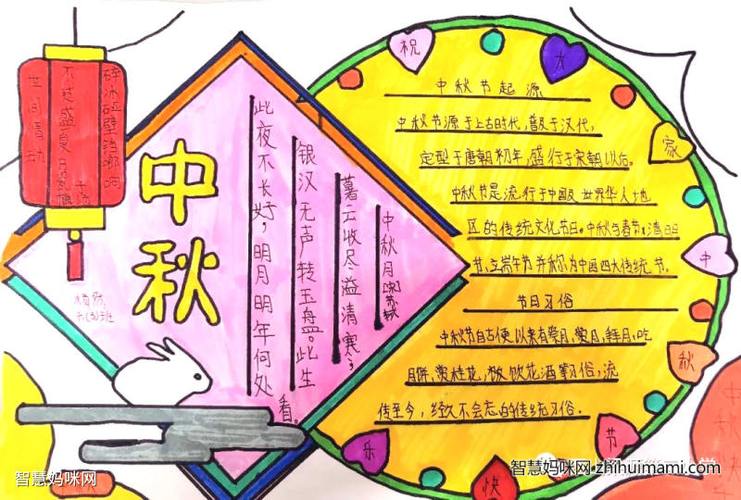 世间情动
不过盛夏
碎冰碰壁
中秋
中秋月 苏轼
暮云收尽溢清寒，
银汉无声转玉盘。此生
此夜不长好，明月明年何处看。
祝
大
家
中
秋
节
快
乐
中秋节起源
中秋节源于上古时代，普及于汉代，
定型于唐朝初年，盛行于宋朝以后。
中秋节是流行于中国及世界华人地
区的传统文化节日。中秋与春节、清明
节、端午节并称为中国四大传统节。
节日习俗
中秋节自古便以来有祭月、赏月、拜月、吃
月饼、赏桂花、饮花酒等习俗，流
传至今，经久不会忘的传统习俗。
智慧妈咪网
智慧妈咪网 zhihuimami.com